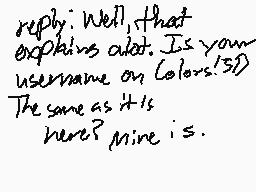 reply: Well, that
explains alot. Is your
username on Colors! 3D
The same as it is
here? Mine is.